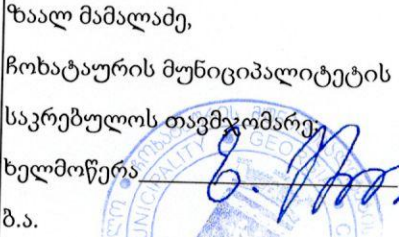 ზაალ მამალაძე,
ჩოხატაურის მუნიციპალიტეტის
საკრებულოს თავმჯომარე;
ხელმოწერა
ბ.ა.
MUNICIPALITY GEOR